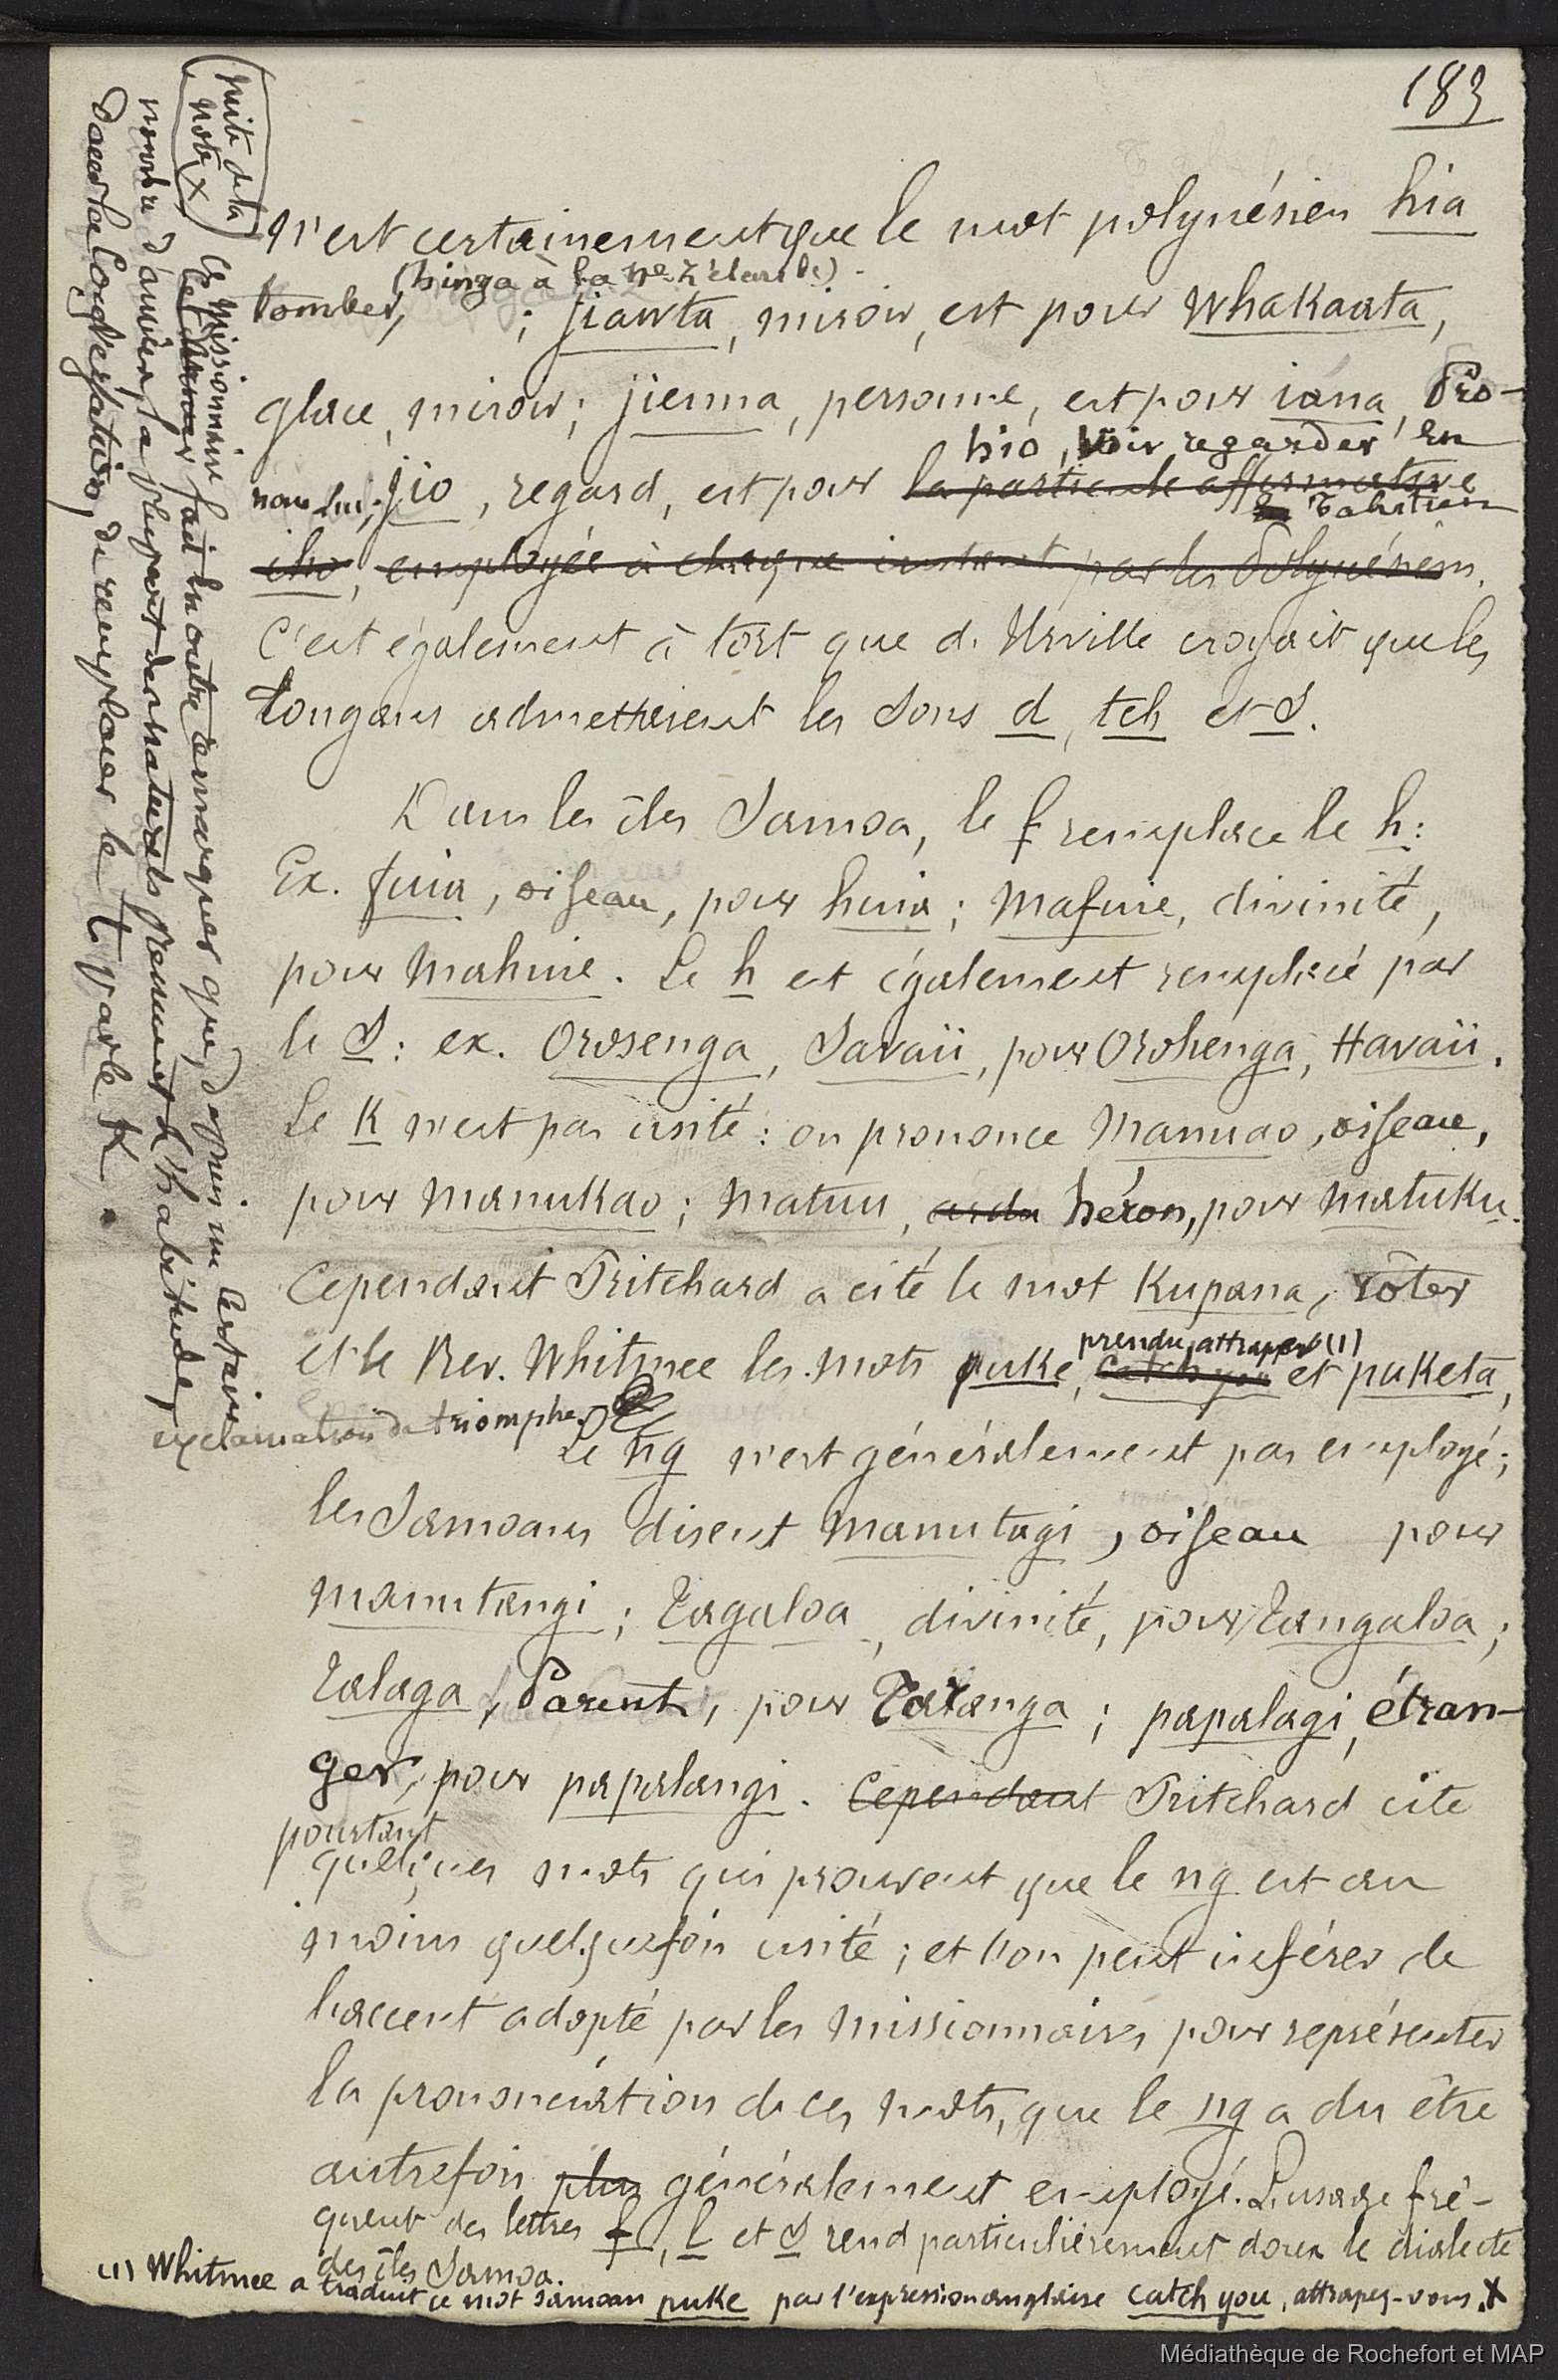 183
n'est certainement que le mot polynésien hia
(hinga à la Ne Zélande).
tomber, ; jiawta, miroir, est pour Whakaata,
glace, miroir; jienna, personne, est pour iana, Pro-
hio, voir, regarder en
nom lui; jio, regard, est pour la particule affirmative
Tahitien
iho, employée à chaque instant par les Polynésiens.
C'est également à tort que d'Urville croyait que les
Tongans admettaient les sons d, tch et S.
Dans les îles Samoa, le f remplace le h:
Ex. fuia, oiseau, pour huia; Mafuie, divinité,
pour Mahuie. Le h est également remplacé par
le S: ex. Orosenga, Savaii, pour Orohenga, Havaii.
Le K n'est pas usité: on prononce Manuao, oiseau,
pour Manukao; Matuu, héron, pour Matuku.
Cependant Pritchard a cité le mot Kupana, rôter
prendre, attraper (1)
et le Rev. Whitmee les mots puke, catch you et puketa,
exclamation de triomphe.
Le ng n'est généralement pas employé;
les Samoans disent Manutagi, oiseau pour
Manutangi; Tagaloa, divinité, pour Tangaloa;
Talaga, Parent, pour Talanga; papalagi, étran-
ger, pour papalangi. Cependant Pritchard cite
pourtant
quelques mots qui prouvent que le ng est au
moins quelquefois usité; et l'on peut inférer de
l'accent adopté par les Missionnaires pour représenter
la prononciation de ces mots, que le ng a du être
autrefois plus généralement employé. L'usage fré-
quent des lettres f, l et S rend particulièrement doux le dialecte
des îles Samoa.
(1) Whitmee a traduit ce mot samoan puke par l'expression anglaise catch you, attrapez-vous. X
(suite de la
note X)
Ce Missionnaire fait en outre remarquer que, depuis un certain
nombre d'années, la plupart des naturels prennent l'habitude,
dans la conversation, de remplacer le T par le K.